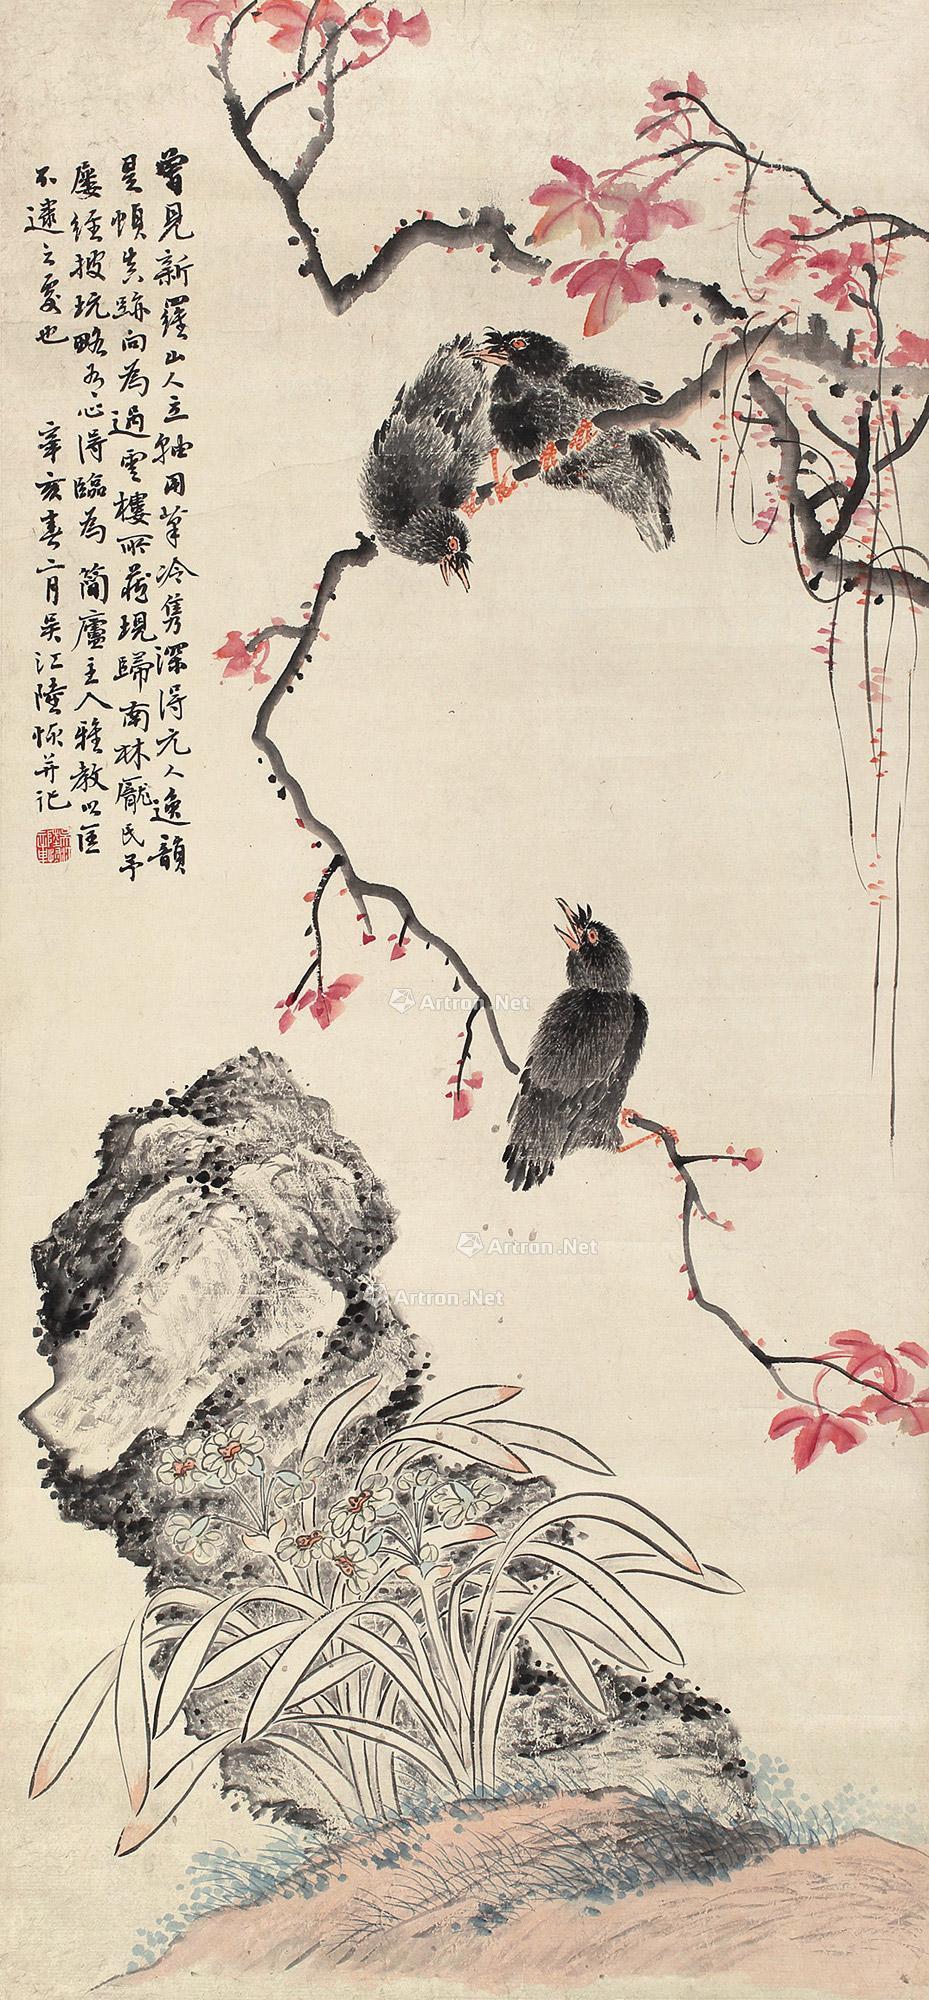 曾見新羅山人立軸用筆冷雋深得元人逸韻
是幀真跡向為過雲樓所藏現歸南林龐氏予
屢經披玩略有心得臨為簡廬主人雅教以匡
不逮之處也 辛亥春二月吳江陸恢并記
Artron.Net
Artron.Net
Artron.Net